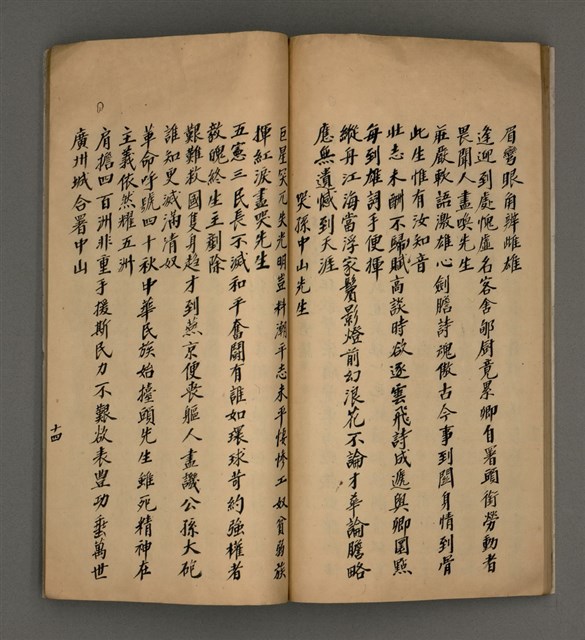 眉彎眼角辨雌雄
逢迎到處愧虛名客舍郇厨竟累卿自署頭銜勞動者
畏聞人盡喚先生
莊嚴軟語激雄心劍膽詩魂傲古今事到関身情到骨
此生惟有汝知音
壯志未酬不歸賦高談時欲逐雲飛詩成遞與卿圈點
每到雄詞手便揮
縱丹江海當浮家鬢影燈前幻浪花不論才華論膽略
應無遺憾到天涯
哭孫中山先生
巨星突兀失光明豈料潮平志未平悽慘工奴貧弱族
揮紅淚盡哭先生
五憲三民長不滅和平奮鬪有誰如環球苛約強權者
敦媿終生主剷除
艱難救國隻身趨才到燕京便喪軀人盡譏公孫大砲
誰知更滅滿清奴
革命呼號四十秋中華民族始擡頭先生雖死精神在
主義依然耀五洲
肩擔四百洲非重手援斯民力不艱欲表豐功垂萬世
廣州城合署中山
十四